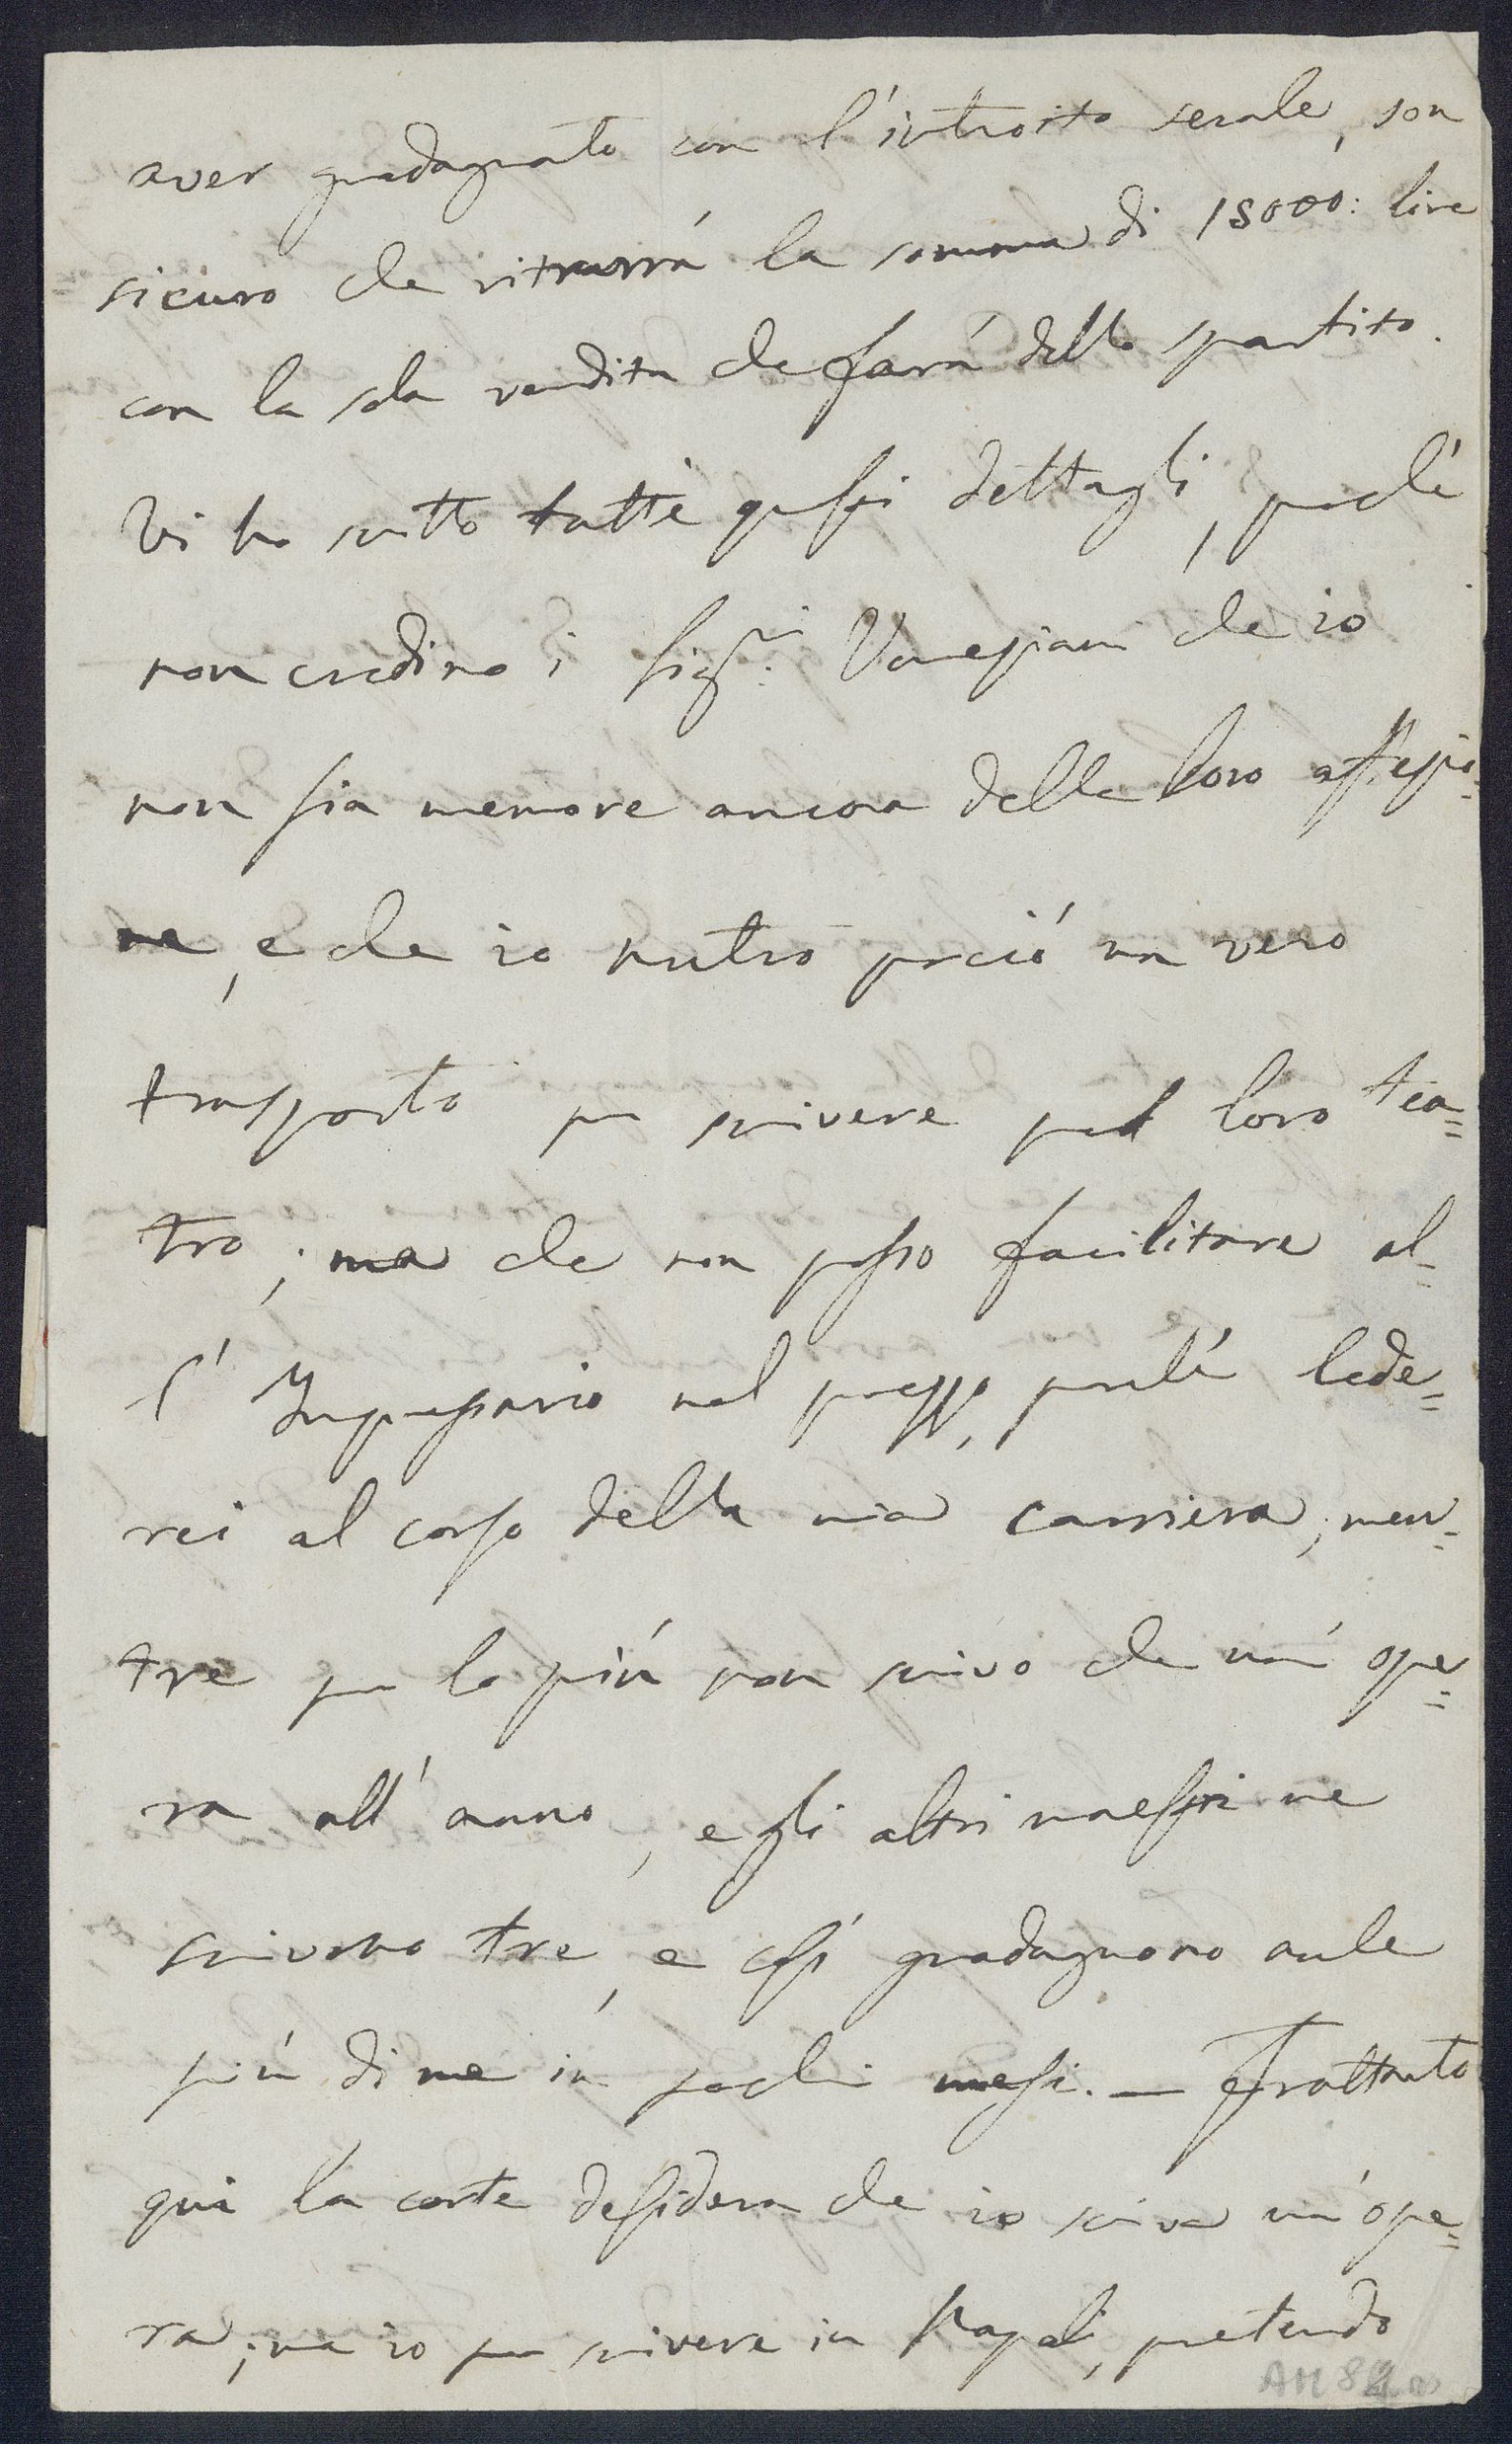 aver guadagnato con l'introito serale, son
sicuro che ritrarrá la somma di 15000: lire
con la sola vendita che fará dello spartito.
Vi ho scritto tutti questi dettagli, perché
non credino i Sig.ri Veneziani che io
non sia memore ancora delle loro affezio-
ne, e che io nutro perció un vero
trasporto per scrivere pel loro tea=
tro; ma che non posso facilitare al-
l'Impressario nel prezzo, perché lede=
rei al corso della mia carriera; men-
tre per lo piú non scrivo che un'ope=
ra all'anno, e gli altri maestri ne
scrivono tre, e cosí guadagnono anche
piú di me in pochi mesi. — Frattanto
qui la corte desidera che io scriva un'ope=
ra; ma io per scrivere in Napoli, pretendo